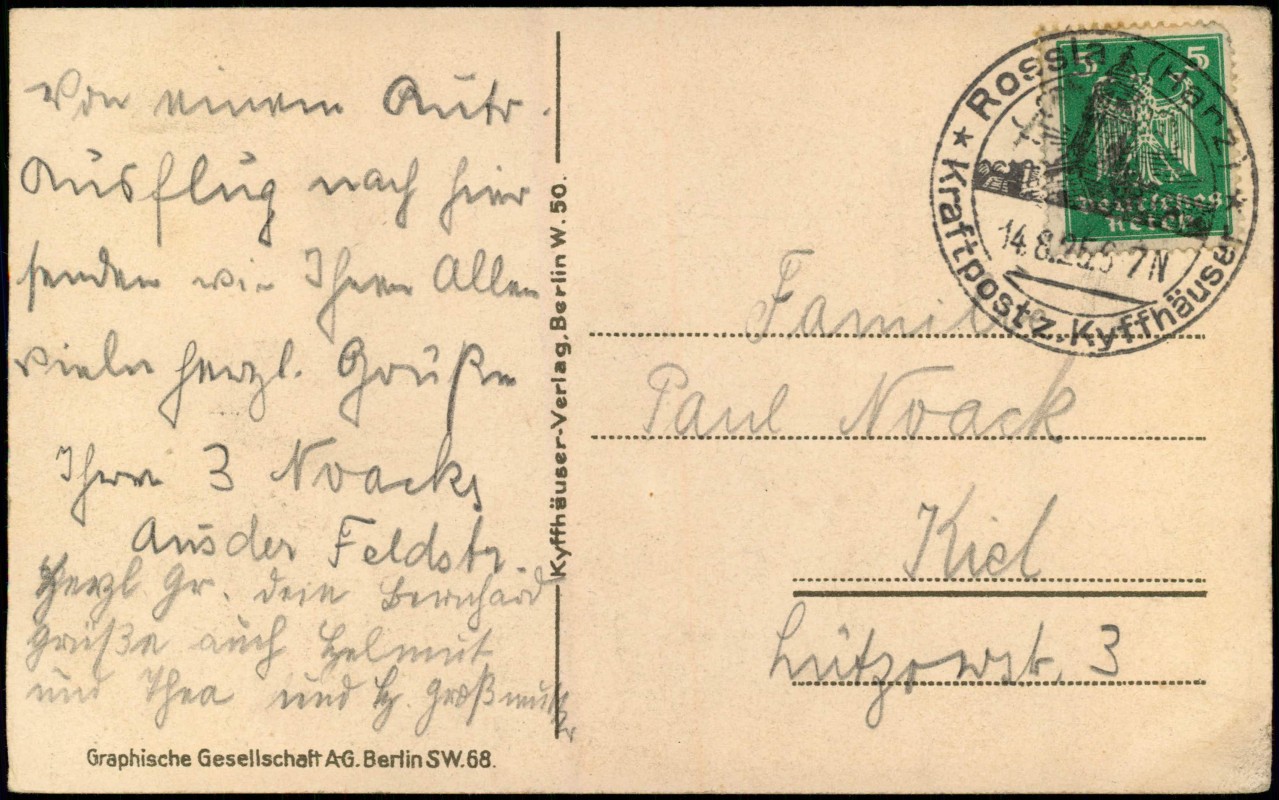 Von einem Auto-
Ausflug nach hier
senden wir Ihnen Allen
viele herzl. Grüße
Ihre 3 Noacks
aus der Feldstr.
Herzl Gr. dein Bernhard
Grüße auch Helmut
und Thea und H. Großmutter
Graphische Gesellschaft A-G. Berlin SW. 68.
Kyffhäuser-Verlag, Berlin W. 50.
5 5
Deutsches
Reich
Rossla (Harz)
14.8.25.6-7N
Kraftpost z. Kyffhäuser
Familie
Paul Noack
Kiel
Lützowstr. 3